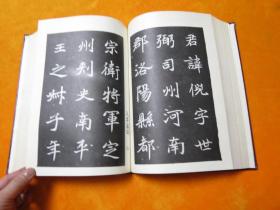 君諱倪字世
弼司州河南
郡洛陽縣都
宗衛將軍定
州刺史南平
王之子年